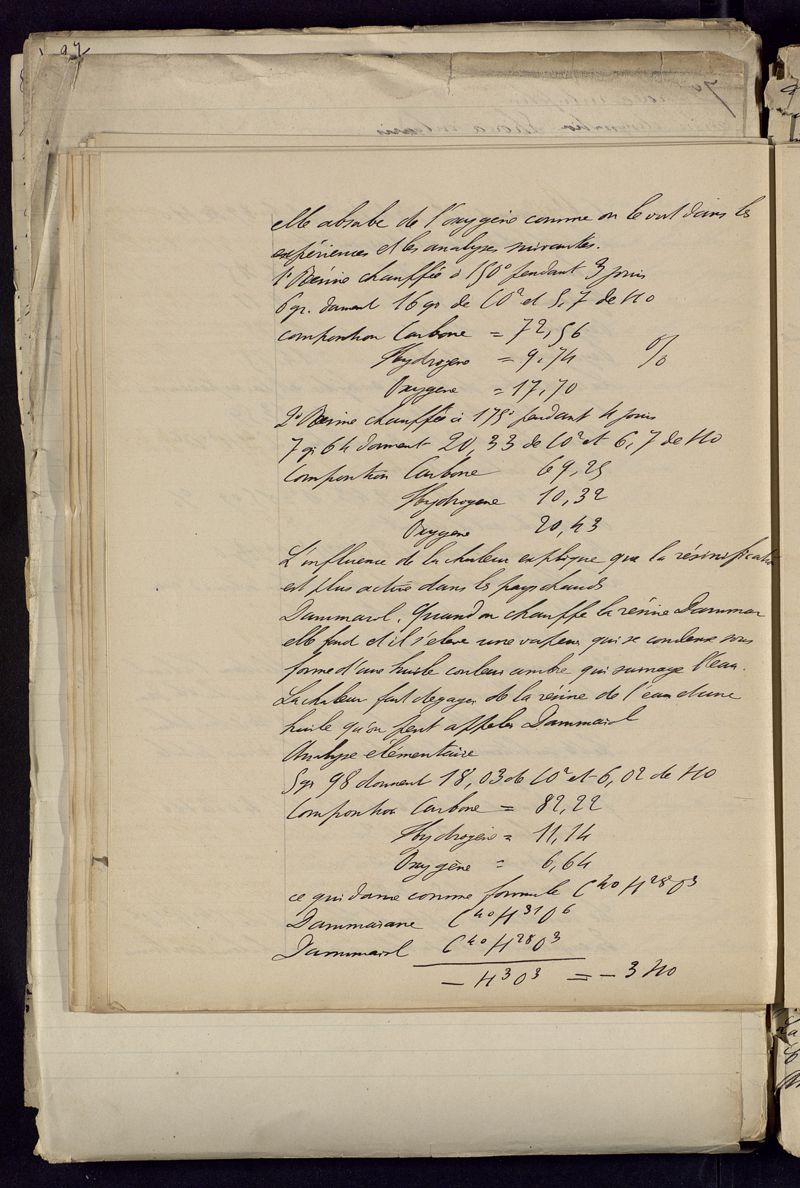 97
elle absorbe de l'oxygène comme on le voit dans les
expériences et les analyses suivantes.
1° Résine chauffée à 150° pendant 3 jours
6 gr. donnent 16 gr de CO² et 5,7 de HO
composition Carbone = 72,56
Hydrogène = 9,74 %
Oxygène = 17,70
2° Résine chauffée à 175° pendant 4 jours
7 gr 64 donnent 20,33 de CO² et 6,7 de HO
Composition Carbone 69,25
Hydrogène 10,32
Oxygène 20,43
L'influence de la chaleur explique que la résinification
est plus active dans les pays chauds
Dammarol. Quand on chauffe la résine Dammar
elle fond et il s'élève une vapeur qui se condense sous
forme d'une huile couleur ambre qui surnage l'eau.
La chaleur fait dégager de la résine de l'eau et une
huile qu'on peut appeler Dammarol
Analyse élémentaire
5 gr 98 donnent 18,03 de CO² et 6,02 de HO
Composition Carbone = 82,22
Hydrogène = 11,14
Oxygène = 6,64
ce qui donne comme formule C⁴⁰H²⁸O³
Dammarane C⁴⁰H³¹O⁶
Dammarol C⁴⁰H²⁸O³
— H³O³ = — 3 HO